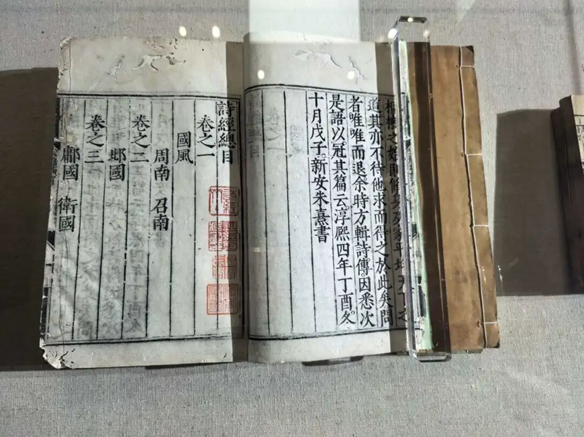 樞機之始則脩身及家平均天下之
道其亦不待他求而得之於此矣問
者唯唯而退余時方輯詩傳因悉次
是語以冠其篇云淳熙四年丁酉冬
十月戊子新安朱熹書
詩經總目
卷之一
國風
周南 召南
卷之二
邶國
卷之三
鄘國 衛國